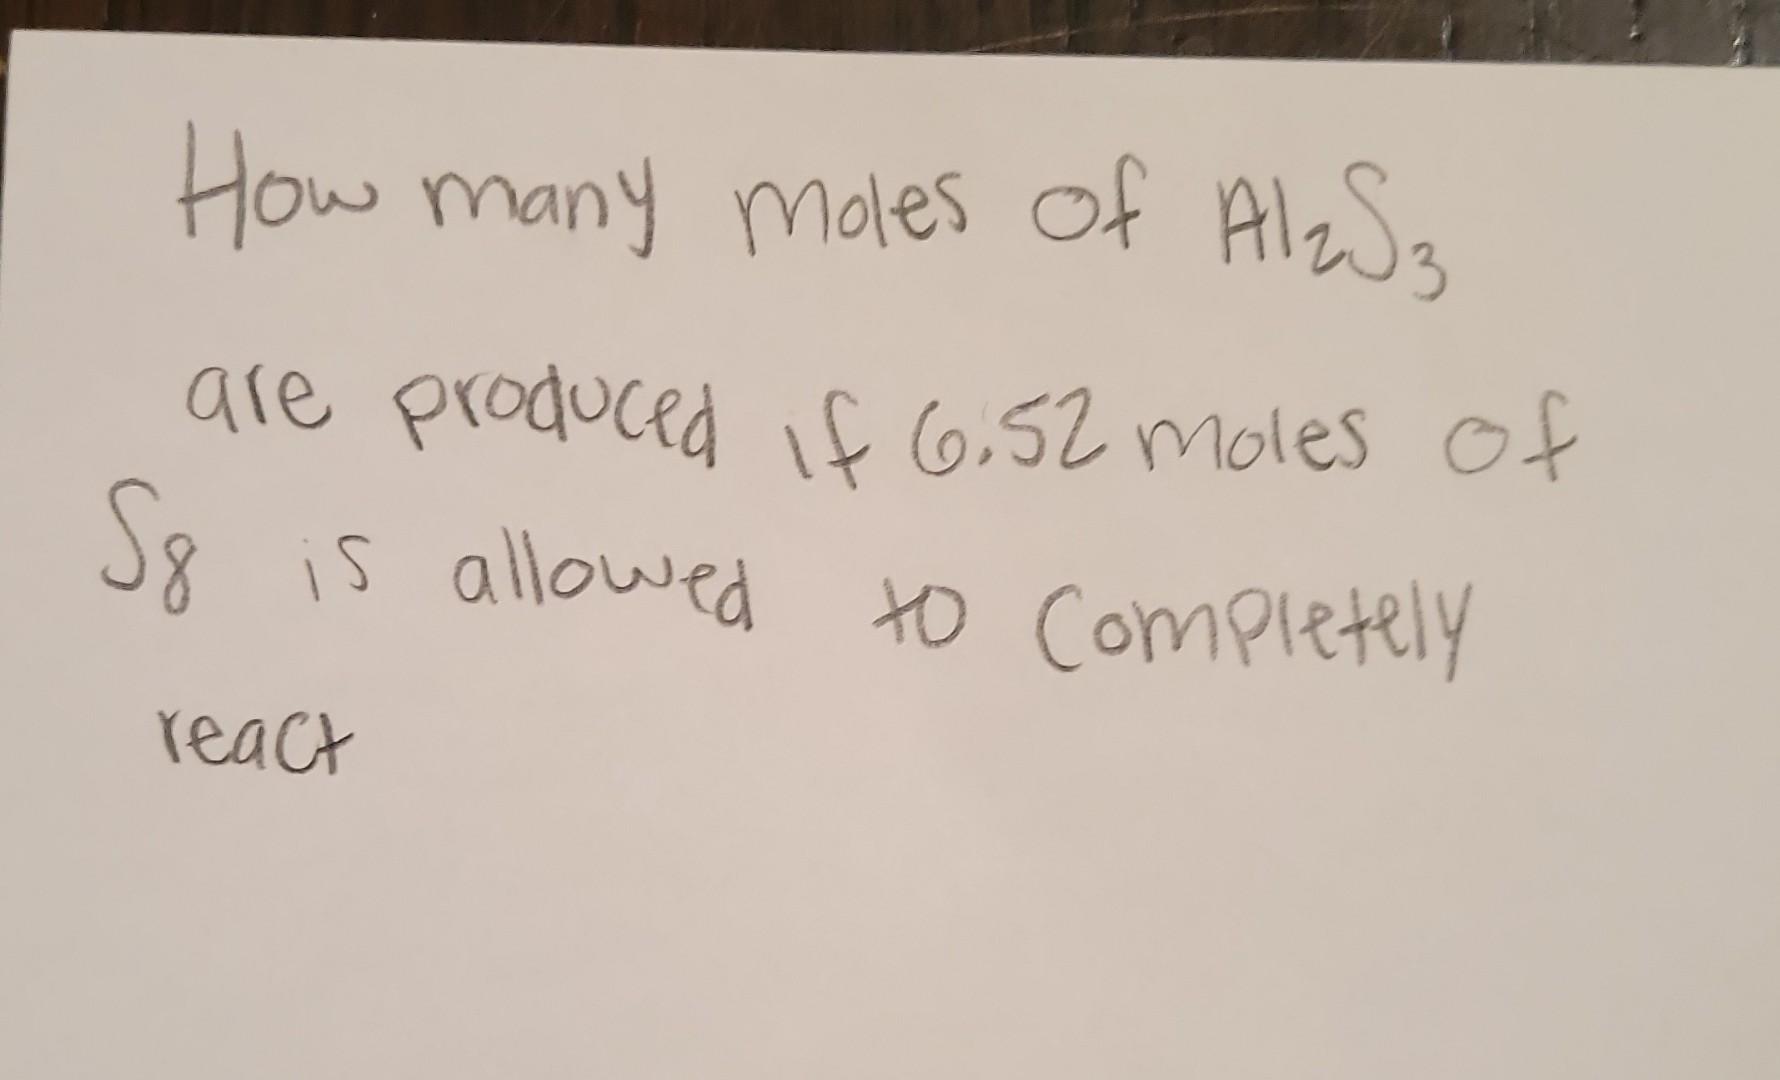 How many moles of Al₂S₃
are produced if 6.52 moles of
S₈ is allowed to completely
react